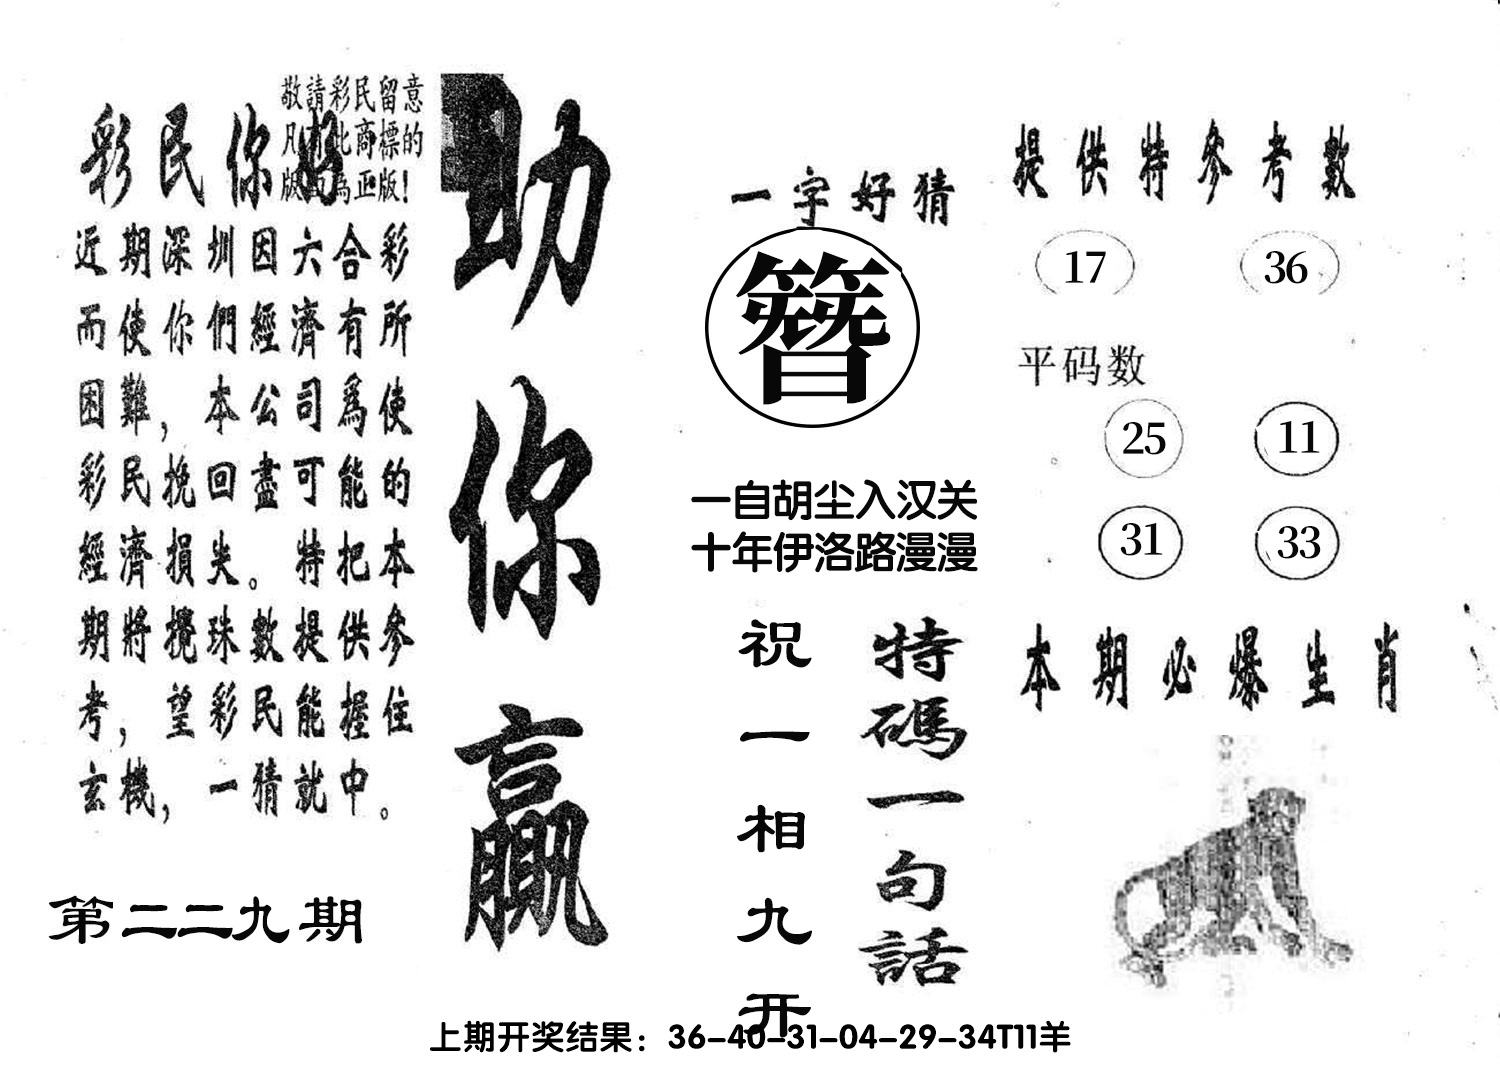 敬請彩民留意
凡有此商標的
版面為正版！
彩民你好
近期深圳因六合彩
而使你們經濟有所
困難，本公司爲使
彩民挽回盡可能的
經濟損失。特把本
期將攪珠數提供參
考，望彩民能握住
玄機，一猜就中。
第二二九期
助你贏
一字好猜
簪
一自胡尘入汉关
十年伊洛路漫漫
特碼一句話
祝一相九开
提供特參考數
17 36
平码数
25 11
31 33
本期必爆生肖
上期开奖结果：36-40-31-04-29-34T11羊